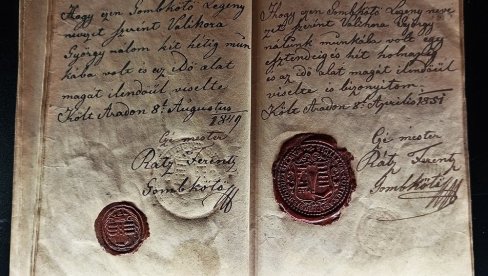 Hogy ezen Gombkötő Legény
nevezet szerint Valihora
György nálom hét hétig mun
kába volt és az idő alat
magát ilendőül viselte
Költ Aradon 8k Augustus
1849
Cé mester
Rátz Ferentz
Gombkötő
Hogy ezen Gombkötő Legeny neve
zet szerint Valihora György
nálunk munkába volt egy
esztendeig és hét holnapig
és az idő alat magát ilendőül
viselte is bizonyitom.
Költ Aradon 8k Aprilis 1851
Cé mester
Rátz Ferentz
Gombkötő